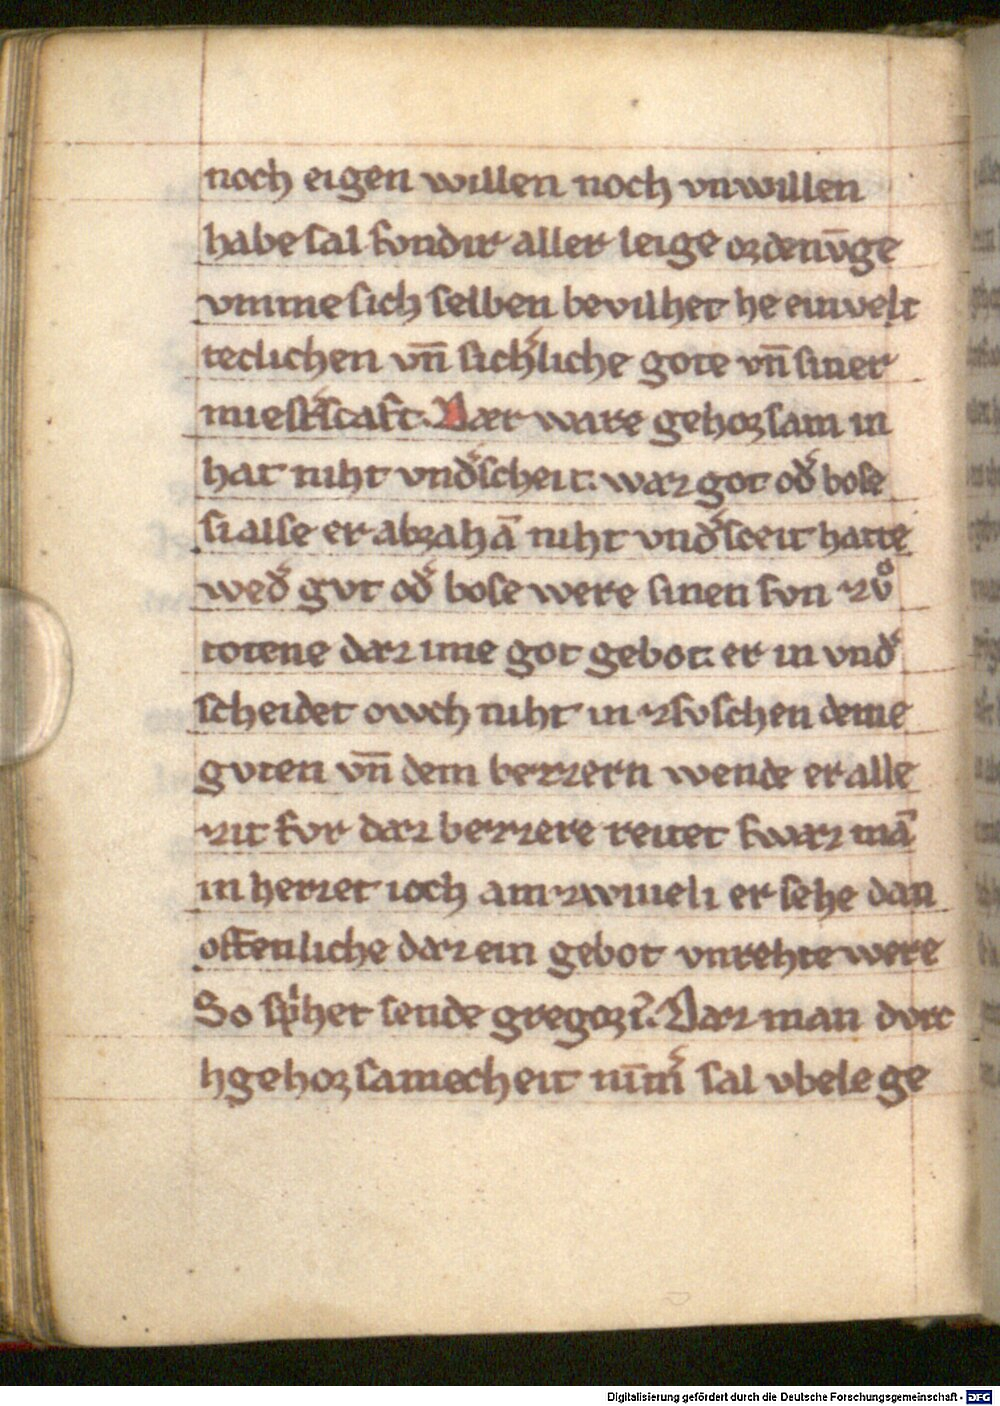 noch eigen willen noch vnwillen
habe sal sundir aller leige ordenūge
vmme sich selben bevilhet he einvelt
teclichen vn̄ sich͛liche gote vn̄ siner
meist͛scaft. Daz ware gehorsam in
hat niht vnd͛scheit. waz got od͛ bose
si alse er abrahā niht vnd͛sceit hatte
wed͛ gvt od͛ bose were sinen svn zvͦ
totene daz ime got gebot. er in vnd͛
scheidet owch niht in zwschen deme
gvten vn̄ dem bezzern wende er alle
zit fvr daz bezzere reitet swaz mā
in heizet ioch am zwiueli er sehe dan
offenliche daz ein gebot vnrehte were
So sp͛het sende gregori͛. Daz man dvrc
hgehorsamecheit nim͛ sal vbele ge
Digitalisierung gefördert durch die Deutsche Forschungsgemeinschaft - DFG